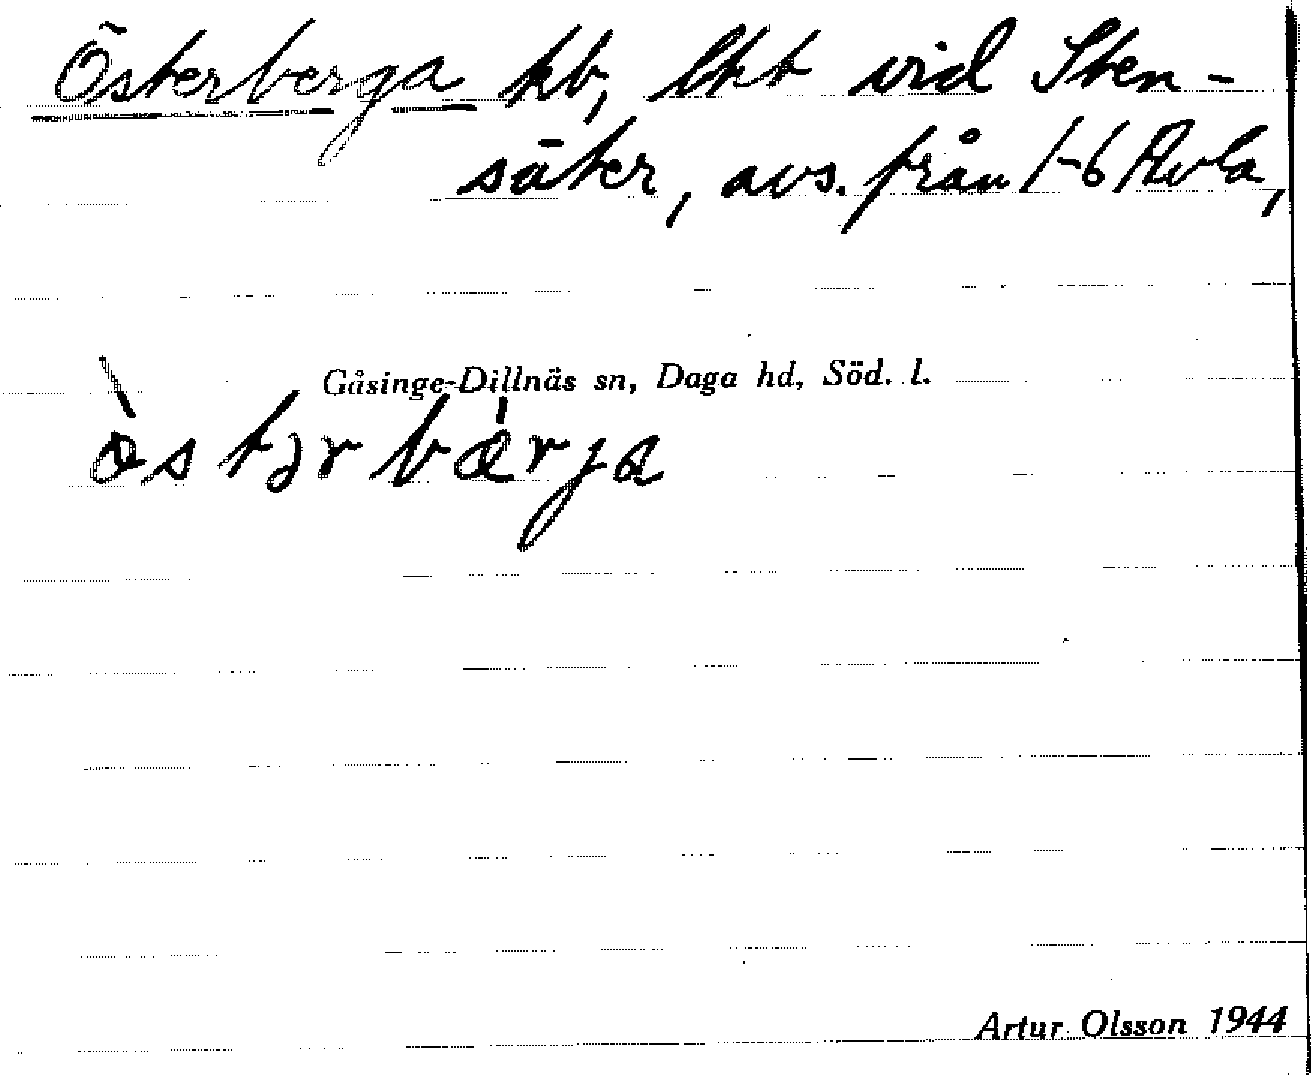 Österberga hb, lht vid Sten-
säter, avs. från 1-6 Avla,
Gåsinge-Dillnäs sn, Daga hd, Söd. l.
ò̀stərbæ̀rja
Artur Olsson 1944